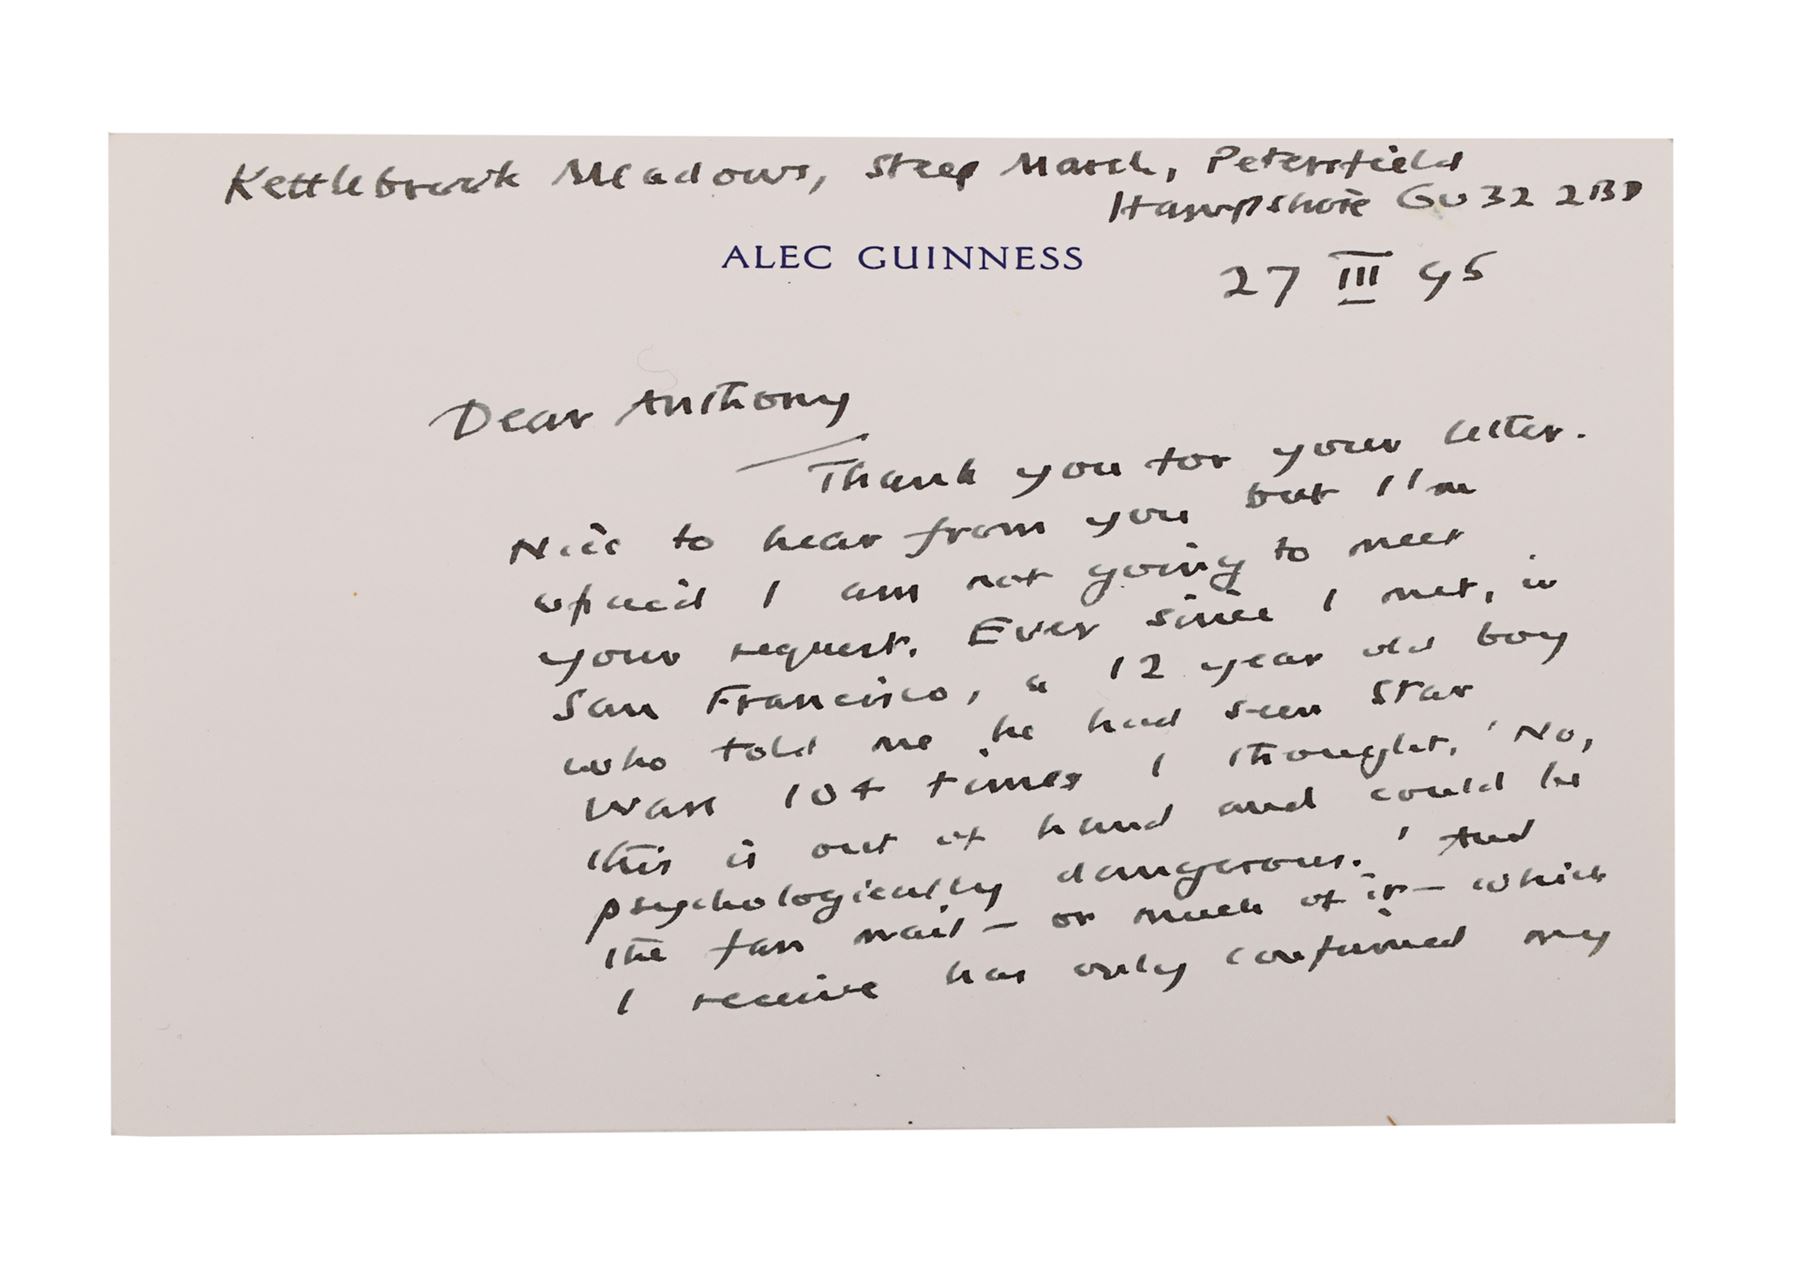 Kettlebrook Meadows, Steep Marsh, Petersfield
Hampshire GU32 2BD
ALEC GUINNESS
27 III 95
Dear Anthony
Thank you for your letter.
Nice to hear from you but I'm
afraid I am not going to meet
your request. Ever since I met, in
San Francisco, a 12 year old boy
who told me he had seen Star
Wars 104 times I thought, 'No,
this is out of hand and could be
psychologically dangerous.' And
the fan mail — or much of it — which
I receive has only confirmed my